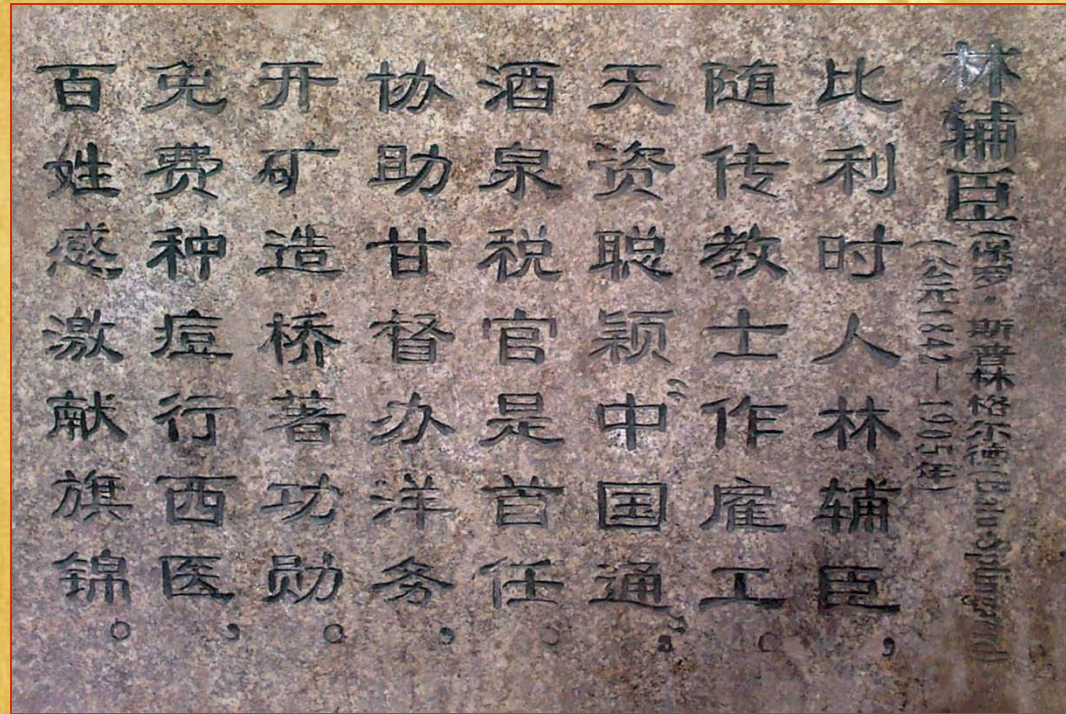 林辅臣(保罗·斯普林格尔德
(公元1842—1905年)
比利时人林辅臣，
随传教士作雇工。
天资聪颖“中国通”，
酒泉税官是首任。
协助甘督办洋务，
开矿造桥著功勋。
免费种痘行西医，
百姓感激献旗锦。